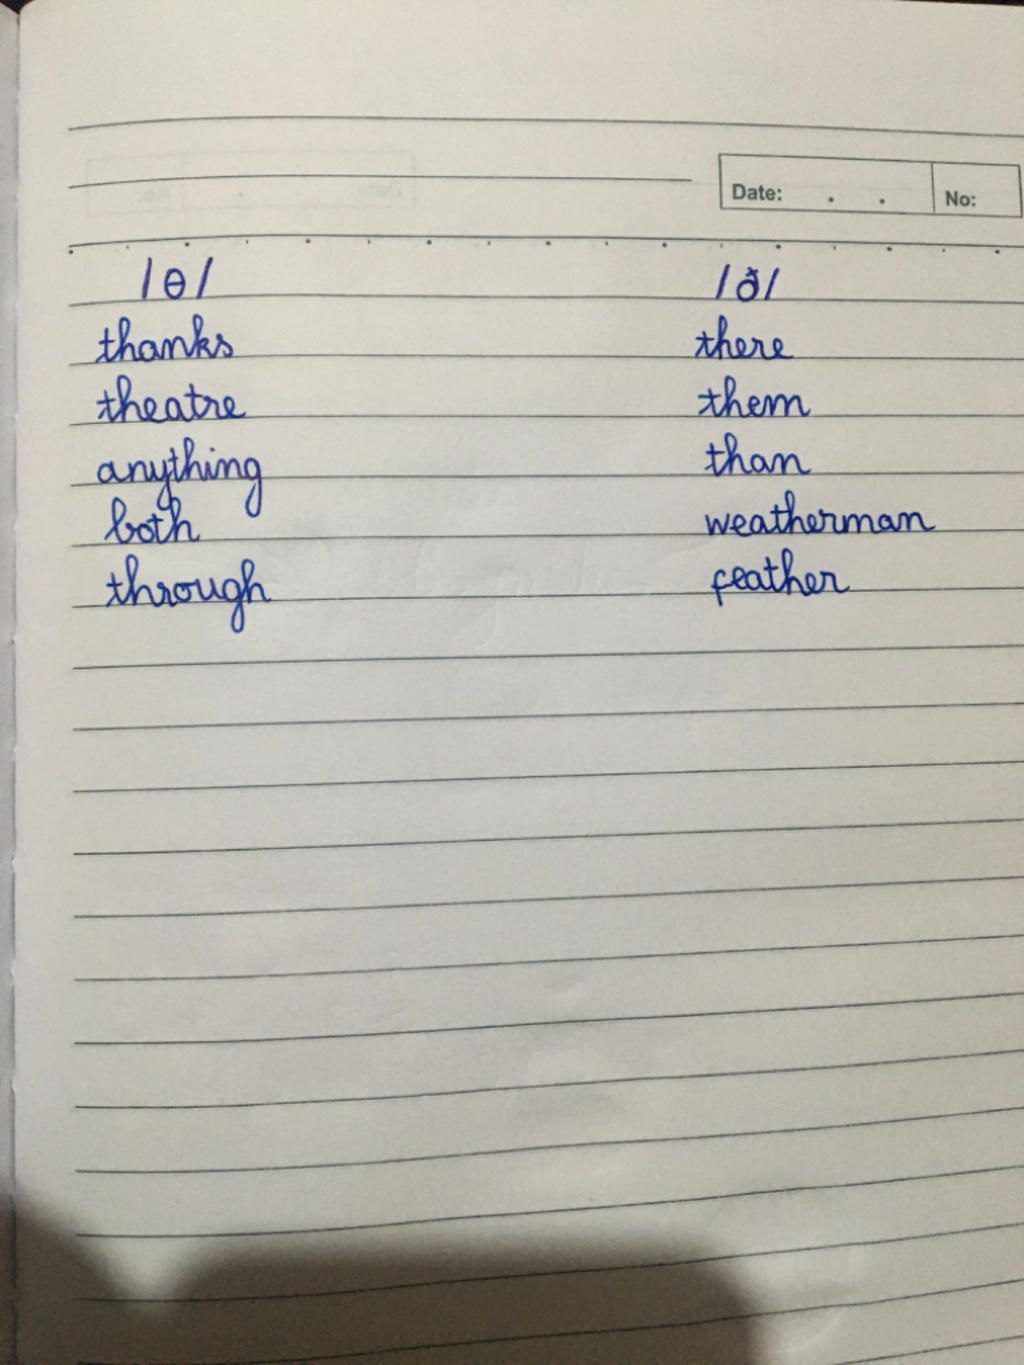 Date: . . No:
/θ/ /ð/
thanks there
theatre them
anything than
both weatherman
through feather